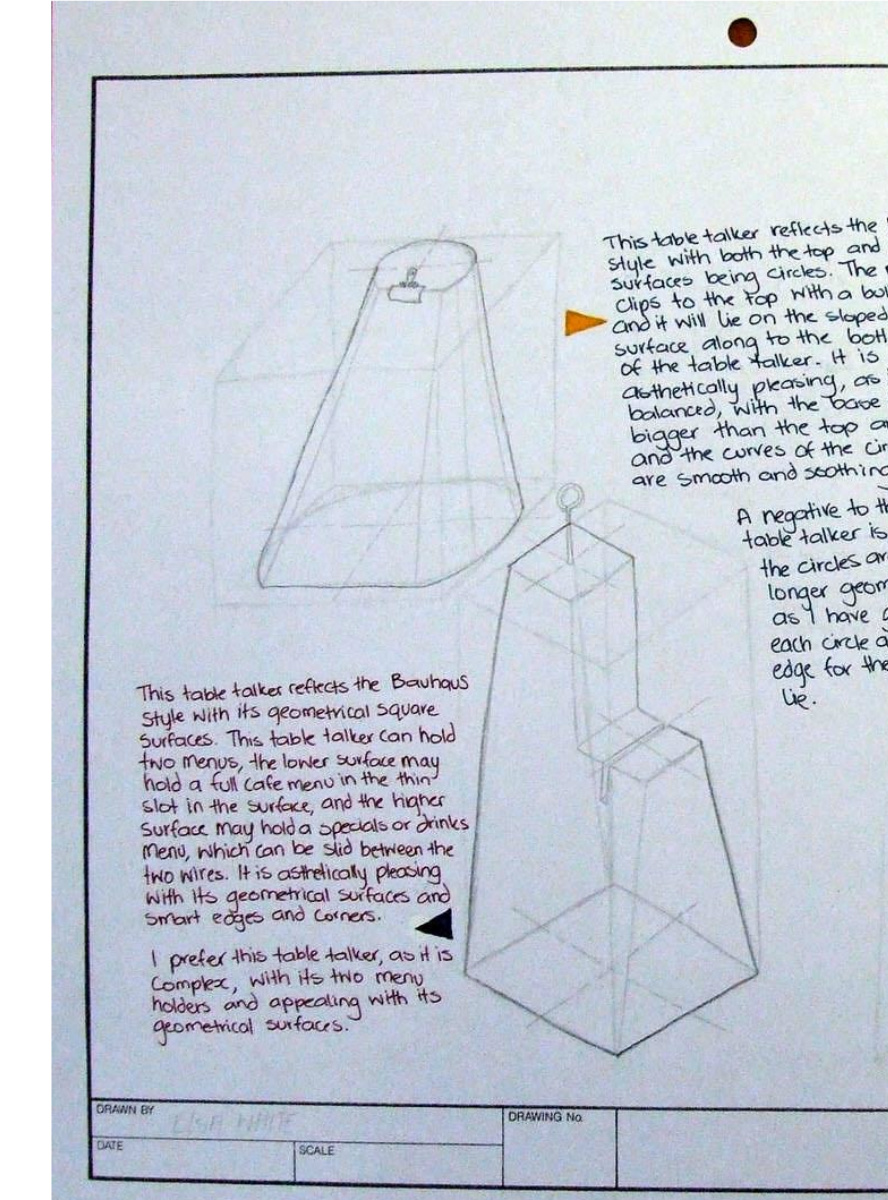 This table talker reflects the
style with both the top and
surfaces being circles. The
clips to the top with a
and it will lie on the sloped
surface along to the
of the table talker. It is
asthetically pleasing, as
balanced, with the base
bigger than the top
and the curves of the
are smooth and soothing
A negative to
table talker is
the circles
longer
as I have
each circle
edge for the
lie.
This table talker reflects the Bauhaus
style with its geometrical square
surfaces. This table talker can hold
two menus, the lower surface may
hold a full cafe menu in the thin
slot in the surface, and the higher
surface may hold a specials or drinks
menu, which can be slid between the
two wires. It is asthetically pleasing
with its geometrical surfaces and
smart edges and corners.
I prefer this table talker, as it is
Complex, with its two menu
holders and appealing with its
geometrical surfaces.
DRAWN BY
LISA WHITE
DRAWING No.
DATE
SCALE